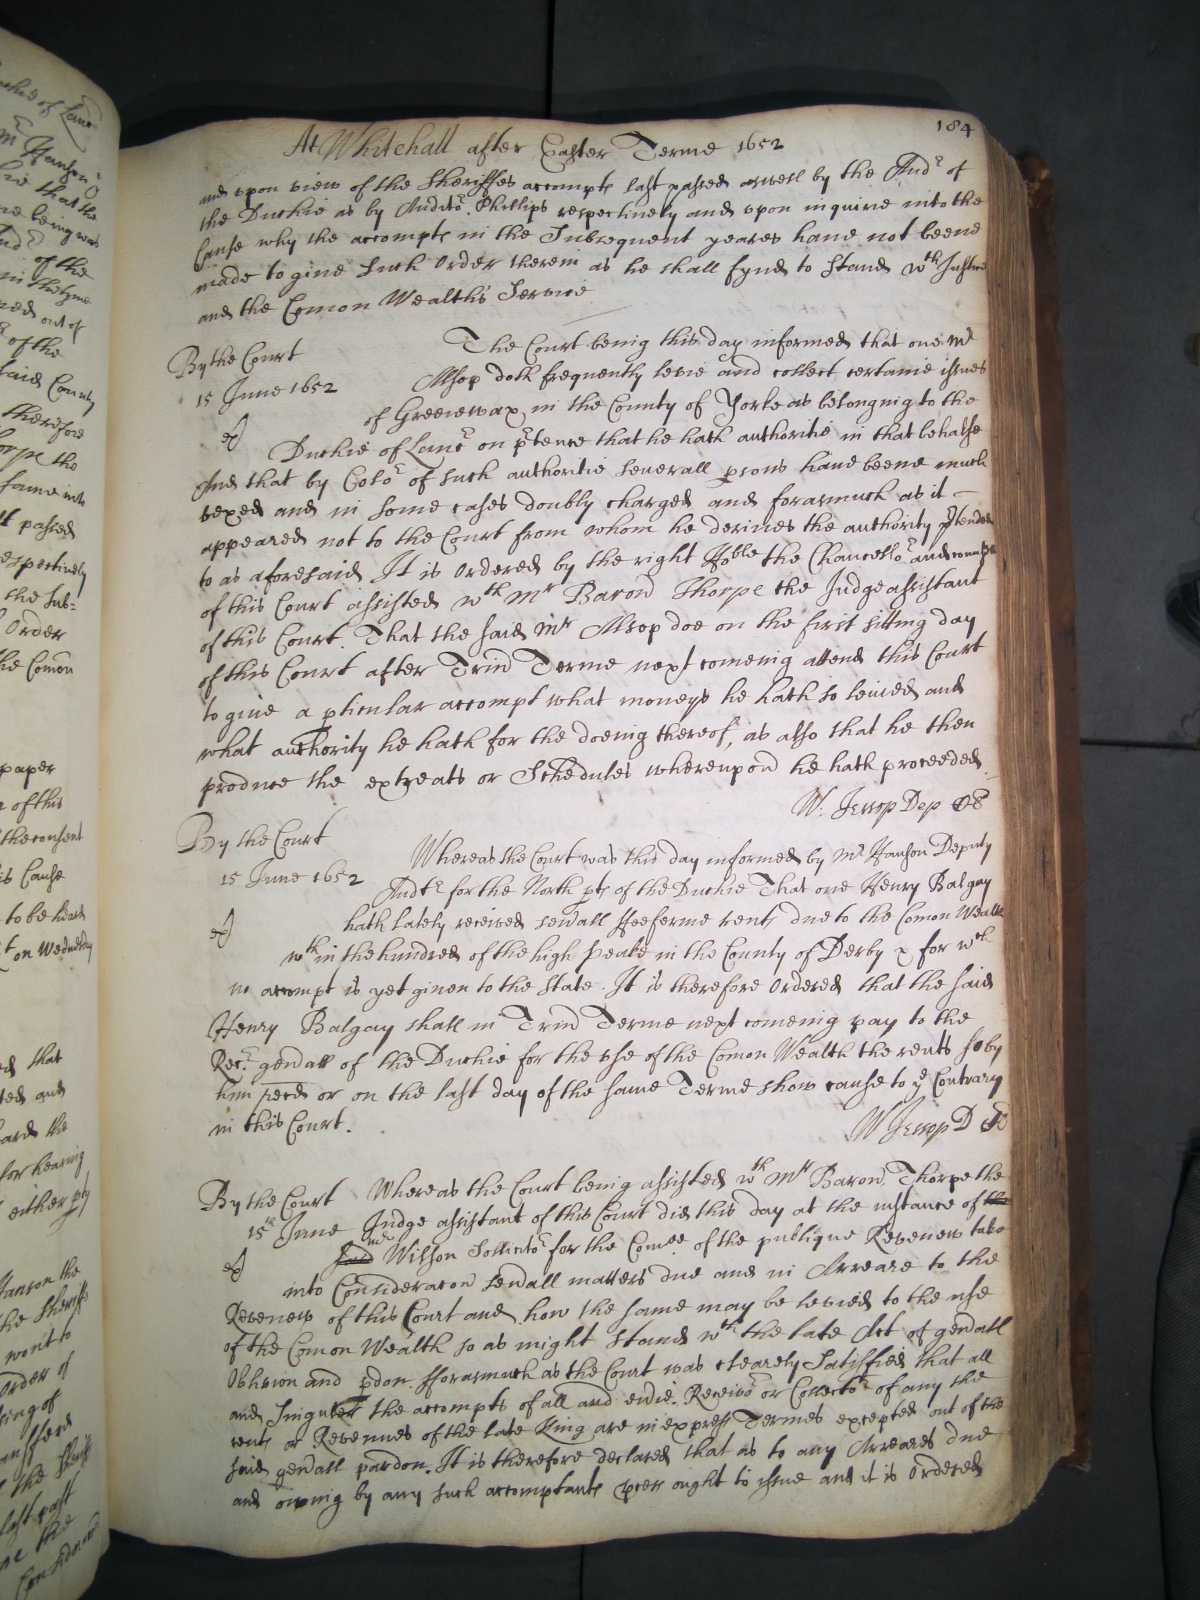 184
At Whitehall after Easter Terme 1652
and vpon view of the Sheriffes accompts last passed aswell by the Audr of
the Duchie as by Auditor Phillips respectiuely and vpon inquirie into the
Cause why the accompts in the Subsequent yeares haue not beene
made to giue such Order therein as he shall fynd to stand wth Justice
and the Comon Wealths Service
The Court being this day informed that one Mr
By the Court
15 June 1652
Alsop doth frequently levie and collect certaine issues
of Greenewax in the County of Yorke as belonging to the
Duchie of Lancr on ptence that he hath authoritie in that behalfe
And that by Color of such authoritie seuerall psons haue beene much
vexed and in some cases doubly charged and forasmuch as it
appeared not to the Court from whom he deriues the authority ptended
to as aforesaid It is Ordered by the right Hoble the Chancellor and
of this Court assisted wth Mr Baron Thorpe the Judge assistant
of this Court. That the said Mr Alsop doe on the first sitting day
of this Court after Trin Terme next comeing attend this Court
to giue a pticular accompt what moneys he hath so leuied and
what authority he hath for the doeing thereof, as also that he then
produce the extreats or Schedules wherevpon he hath proceeded.
W: Jessop Dep
By the Court
15 June 1652
Whereas the Court was this day informed by Mr Hanson Deputy
Audtr for the North pts of the Duchie That one Henry Balgay
hath lately received seuall Heeferme rents due to the Comon Wealth
wth in the hundred of the high Peake in the County of Derby & for wch
no accompt is yet giuen to the State. It is therefore Ordered that the said
Henry Balgay shall in Trin Terme next comeing pay to the
Recr genall of the Duchie for the vse of the Comon Wealth the rents so by
him reced or on the last day of the same Terme show cause to ye Contrary
in this Court.
W Jessop D
By the Court
15th June
Whereas the Court being assisted wth Mr Baron Thorpe the
Judge assistant of this Court did this day at the instance of the
said Mr Wilson Sollicitor for the Comee of the publique Revenew take
into Consideracon seuall matters due and in Arreare to the
Revenew of this Court and how the same may be levied to the use
of the Comon Wealth so as might stand wth the late Act of genall
Oblivion and pdon fforasmuch as the Court was clearely satisfied that all
and Singuler the accompts of all and euie Receivor or Collector of any the
rents or Revenues of the late King are in express Termes excepted out of the
said genall pardon. It is therefore declared that as to any Arreares due
and owing by any such accomptants pcess ought to issue and it is Ordered